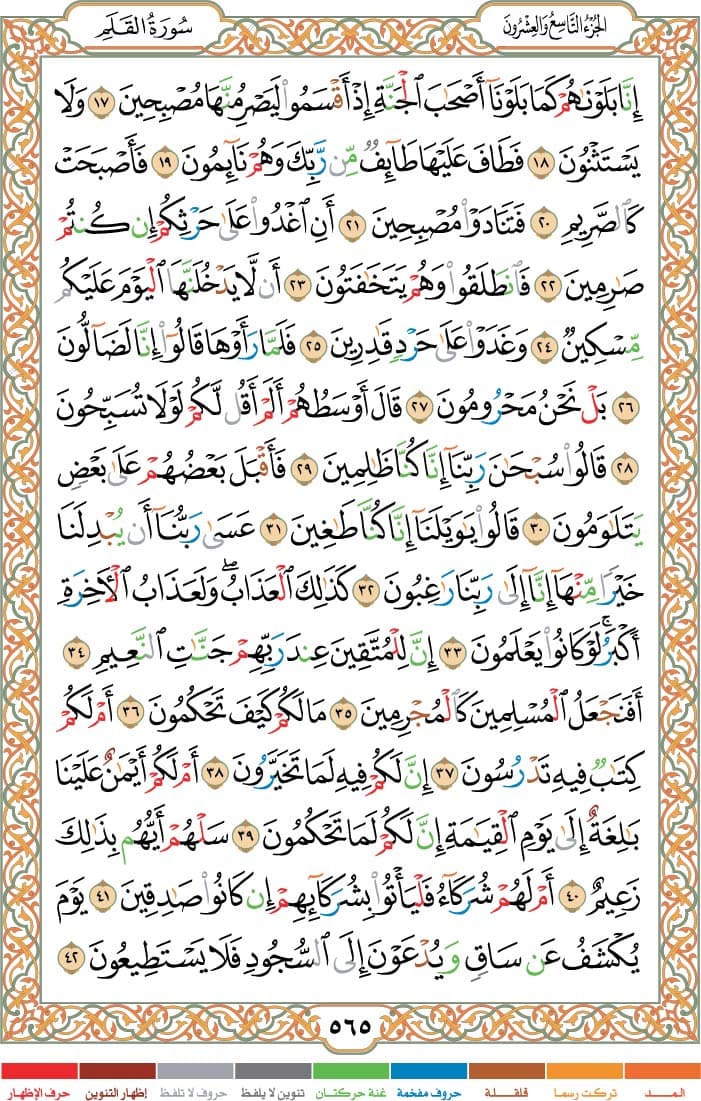 الجُزْءُ التَّاسِعُ وَالعِشْرُونَ
سُورَةُ القَلَمِ
إِنَّا بَلَوْنَٰهُمْ كَمَا بَلَوْنَآ أَصْحَٰبَ ٱلْجَنَّةِ إِذْ أَقْسَمُوا۟ لَيَصْرِمُنَّهَا مُصْبِحِينَ ١٧ وَلَا
يَسْتَثْنُونَ ١٨ فَطَافَ عَلَيْهَا طَآئِفٌ مِّن رَّبِّكَ وَهُمْ نَآئِمُونَ ١٩ فَأَصْبَحَتْ
كَٱلصَّرِيمِ ٢٠ فَتَنَادَوْا۟ مُصْبِحِينَ ٢١ أَنِ ٱغْدُوا۟ عَلَىٰ حَرْثِكُمْ إِن كُنتُمْ
صَٰرِمِينَ ٢٢ فَٱنطَلَقُوا۟ وَهُمْ يَتَخَٰفَتُونَ ٢٣ أَن لَّا يَدْخُلَنَّهَا ٱلْيَوْمَ عَلَيْكُم
مِّسْكِينٌ ٢٤ وَغَدَوْا۟ عَلَىٰ حَرْدٍ قَٰدِرِينَ ٢٥ فَلَمَّا رَأَوْهَا قَالُوٓا۟ إِنَّا لَضَآلُّونَ
٢٦ بَلْ نَحْنُ مَحْرُومُونَ ٢٧ قَالَ أَوْسَطُهُمْ أَلَمْ أَقُل لَّكُمْ لَوْلَا تُسَبِّحُونَ
٢٨ قَالُوا۟ سُبْحَٰنَ رَبِّنَآ إِنَّا كُنَّا ظَٰلِمِينَ ٢٩ فَأَقْبَلَ بَعْضُهُمْ عَلَىٰ بَعْضٍ
يَتَلَٰوَمُونَ ٣٠ قَالُوا۟ يَٰوَيْلَنَآ إِنَّا كُنَّا طَٰغِينَ ٣١ عَسَىٰ رَبُّنَآ أَن يُبْدِلَنَا
خَيْرًا مِّنْهَآ إِنَّآ إِلَىٰ رَبِّنَا رَٰغِبُونَ ٣٢ كَذَٰلِكَ ٱلْعَذَابُ ۖ وَلَعَذَابُ ٱلْءَاخِرَةِ
أَكْبَرُ ۚ لَوْ كَانُوا۟ يَعْلَمُونَ ٣٣ إِنَّ لِلْمُتَّقِينَ عِندَ رَبِّهِمْ جَنَّٰتِ ٱلنَّعِيمِ ٣٤
أَفَنَجْعَلُ ٱلْمُسْلِمِينَ كَٱلْمُجْرِمِينَ ٣٥ مَا لَكُمْ كَيْفَ تَحْكُمُونَ ٣٦ أَمْ لَكُمْ
كِتَٰبٌ فِيهِ تَدْرُسُونَ ٣٧ إِنَّ لَكُمْ فِيهِ لَمَا تَخَيَّرُونَ ٣٨ أَمْ لَكُمْ أَيْمَٰنٌ عَلَيْنَا
بَٰلِغَةٌ إِلَىٰ يَوْمِ ٱلْقِيَٰمَةِ إِنَّ لَكُمْ لَمَا تَحْكُمُونَ ٣٩ سَلْهُمْ أَيُّهُم بِذَٰلِكَ
زَعِيمٌ ٤٠ أَمْ لَهُمْ شُرَكَآءُ فَلْيَأْتُوا۟ بِشُرَكَآئِهِمْ إِن كَانُوا۟ صَٰدِقِينَ ٤١ يَوْمَ
يُكْشَفُ عَن سَاقٍ وَيُدْعَوْنَ إِلَى ٱلسُّجُودِ فَلَا يَسْتَطِيعُونَ ٤٢
٥٦٥
المـــد تركت رسما قلقـــلة حروف مفخمة غنة حركتان تنوين لا يلفظ حروف لا تلفظ إظهار التنوين حرف الإظهار